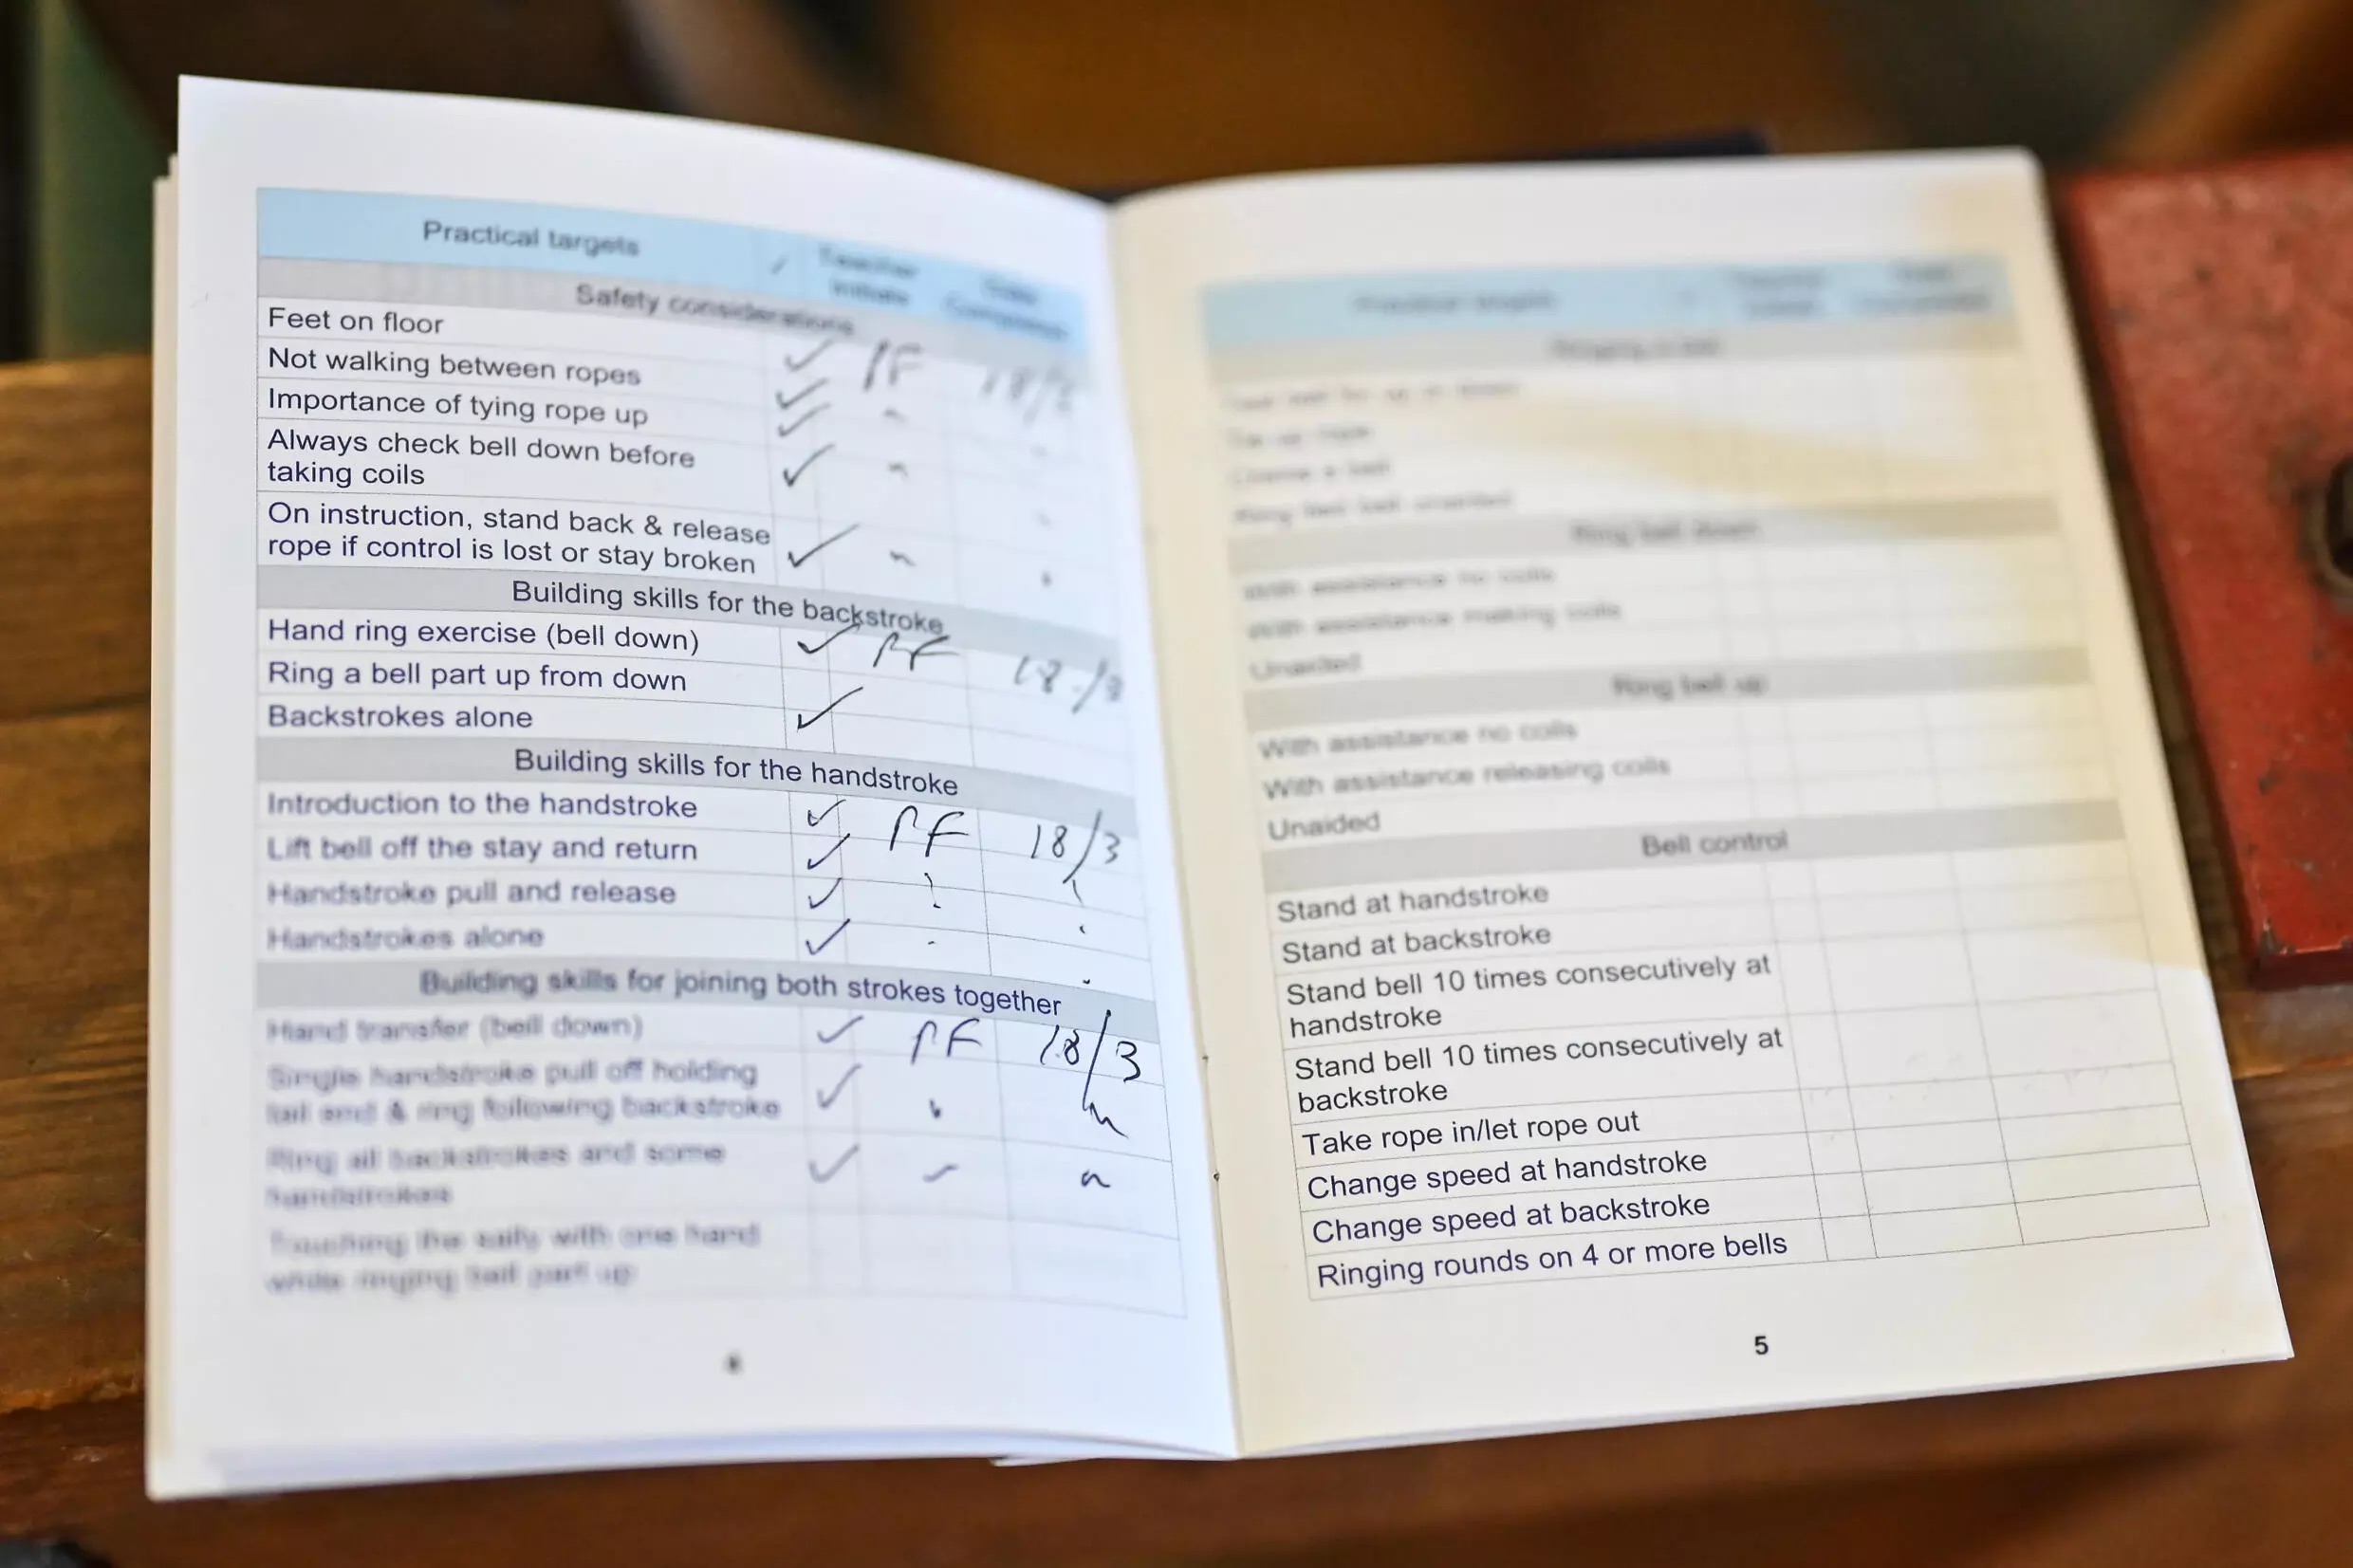 Practical targets
Teacher
Initials
Safety considerations
Feet on floor
PF 18/3
Not walking between ropes
Importance of tying rope up
Always check bell down before
taking coils
On instruction, stand back & release
rope if control is lost or stay broken
Building skills for the backstroke
Hand ring exercise (bell down)
PF 18/3
Ring a bell part up from down
Backstrokes alone
Building skills for the handstroke
Introduction to the handstroke
PF 18/3
Lift bell off the stay and return
Handstroke pull and release
Handstrokes alone
Building skills for joining both strokes together
Hand transfer (bell down)
PF 18/3
Single handstroke pull off holding
tail end & ring following backstroke
Ring all backstrokes and some
handstrokes
Touching the sally with one hand
while ringing bell part up
Practical targets
Ringing a bell
Ring bell down
With assistance no coils
With assistance making coils
Unaided
Ring bell up
With assistance no coils
With assistance releasing coils
Unaided
Bell control
Stand at handstroke
Stand at backstroke
Stand bell 10 times consecutively at
handstroke
Stand bell 10 times consecutively at
backstroke
Take rope in/let rope out
Change speed at handstroke
Change speed at backstroke
Ringing rounds on 4 or more bells
5